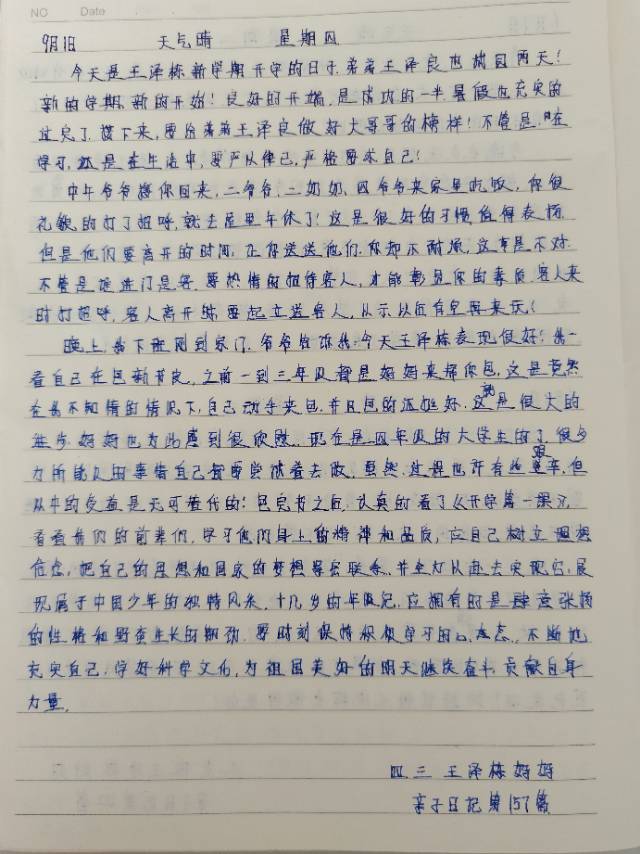 NO Date
9月1日 天气晴 星期四
今天是王泽栋新学期开学的日子,弟弟王泽良也放园两天!
新的学期,新的开始!良好的开端,是成功的一半,暑假也充实的
过完了,接下来,要给弟弟王泽良做好大哥哥的榜样!不管是,在
学习,还是在生活中,要严以律己,严格要求自己!
中午爷爷接你回来,二爷爷,二奶奶,四爷爷来家里吃饭,你很
礼貌的打了招呼,就去屋里午休了!这是很好的习惯,值得表扬,
但是他们要离开的时间,让你送送他们,你却不耐烦,这事是不对,
不管是谁进门是客,要热情的招待客人,才能彰显你的素质,客人来
时打招呼,客人离开时,要起立送客人,以示以后有空再来玩!
晚上,我下班刚到家门,爷爷告诉我:今天王泽栋表现很好!我一
看自己在包新书皮,之前一到三年级都是妈妈来帮你包,这是竟然
在我不知情的情况下,自己动手来包,并且包的还挺好,这就是很大的
进步,妈妈也为此感到很欣慰,现在是四年级的大学生的了,很多
力所能及的事情自己都要尝试着去做,虽然,过程也许有些艰辛,但
从中的受益是无可替代的!包完书之后,认真的看了《开学第一课》,
看看我们的前辈们,学习他们身上的精神和品质,应自己树立理想
信念,把自己的思想和国家的梦想紧密联系,并全力以赴去实现它,展
现属于中国少年的独特风采,十几岁的年级纪,应拥有的是肆意张扬
的性格和野蛮生长的期劲,要时刻保持积极学习的心态,不断地
充实自己,学好科学文化,为祖国美好的明天继续奋斗,贡献自身
力量。
四三 王泽栋妈妈
亲子日记第157篇